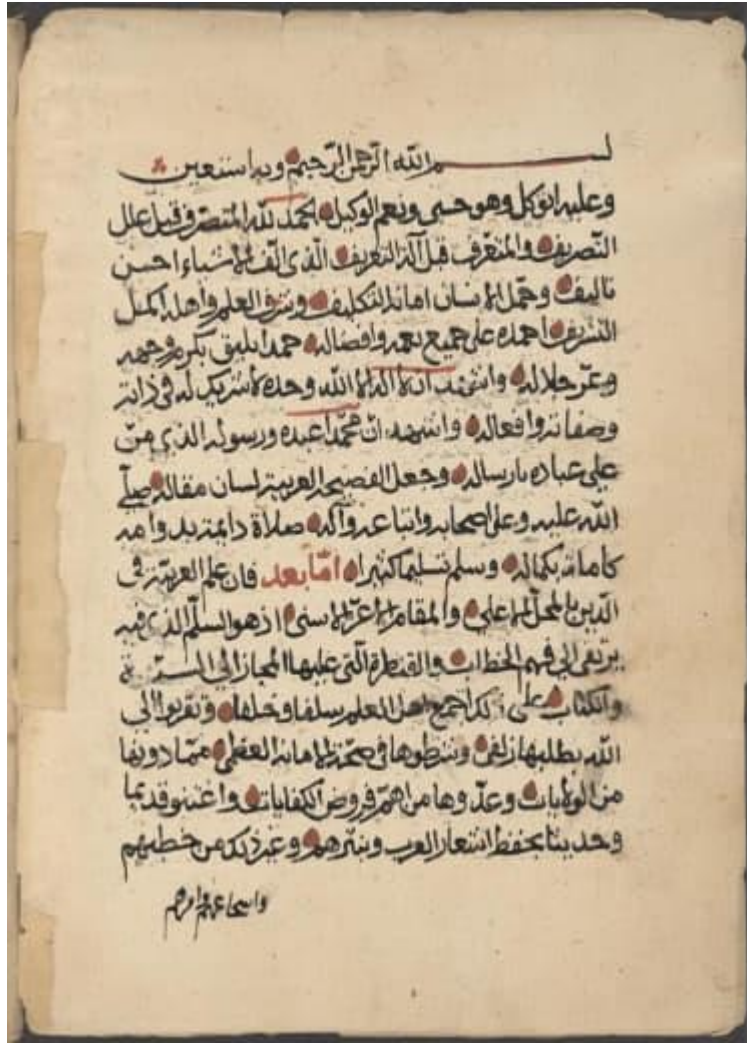 بسم الله الرحمن الرحيم وبه استعين
وعليه اتوكل وهو حسبي ونعم الوكيل الحمد لله المتصرف قبل علل
التصريف والمتعرف قبل آلة التعريف الذي الف الاشياء احسن
تاليف وحمل الانسان امانة التكليف وشرف العلم واهله اكمل
التشريف احمده على جميع نعمه وافضاله حمدا يليق بكرم وجهه
وعز جلاله واشهد ان لا اله الا الله وحده لا شريك له في ذاته
وصفاته وافعاله واشهد ان محمدا عبده ورسوله الذي من
على عباده بارساله وجعل الفصيحة العربية لسان مقاله صلى
الله عليه وعلى اصحابه واتباعه وآله صلاة دائمة بدوامه
كاملة بكماله وسلم تسليما كثيرا اما بعد فان علم العربية في
الدين بالمحل الاعلى والمقام الاعز الاسنى اذ هو السلم الذي فيه
يرتقى الى فهم الخطاب والقنطرة التي عليها المجاز الى السنة
والكتاب على ذلك اجمع اهل العلم سلفا وخلفا وتقربوا الى
الله بطلبها زلفى وشرطوها في صحة الامامة العظمى فما دونها
من الولايات وعدوها من اهم فروض الكفايات واعتنو قديما
وحديثا بحفظ اشعار العرب ونثرهم وغير ذلك من خطبهم
واسجاعهم